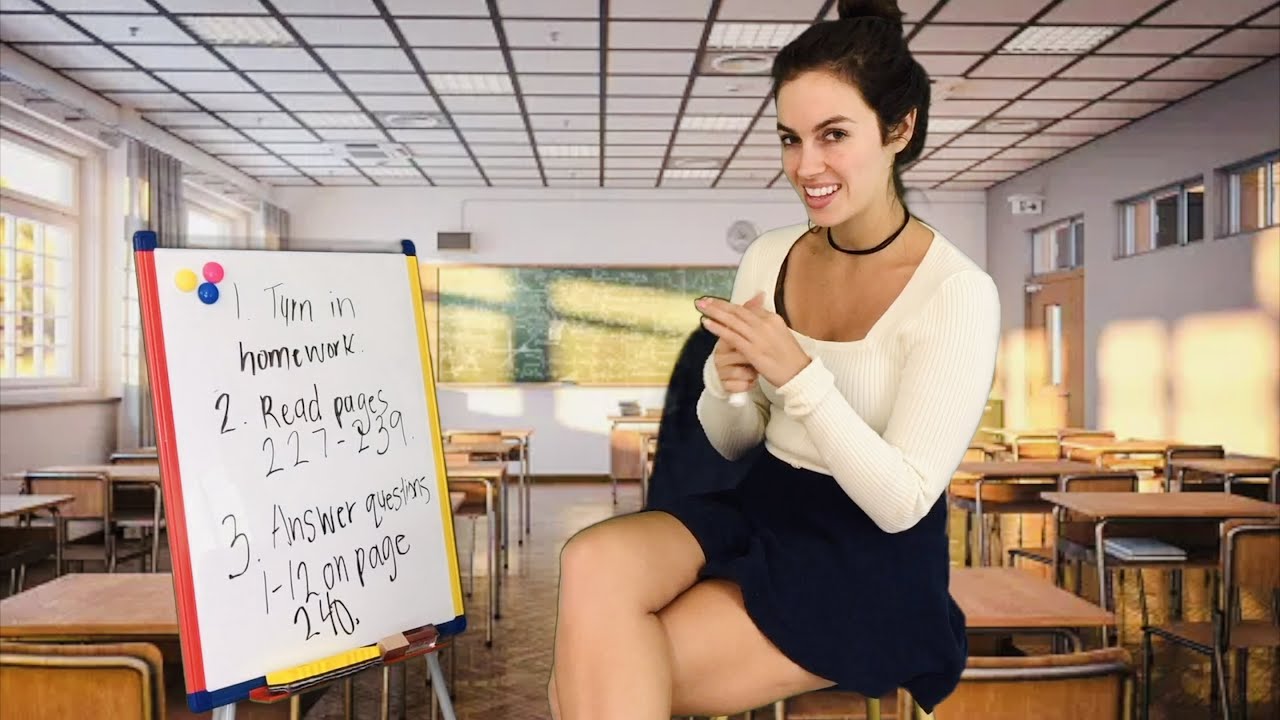 1. Turn in
homework.
2. Read pages
227-239.
3. Answer questions
1-12 on page
240.